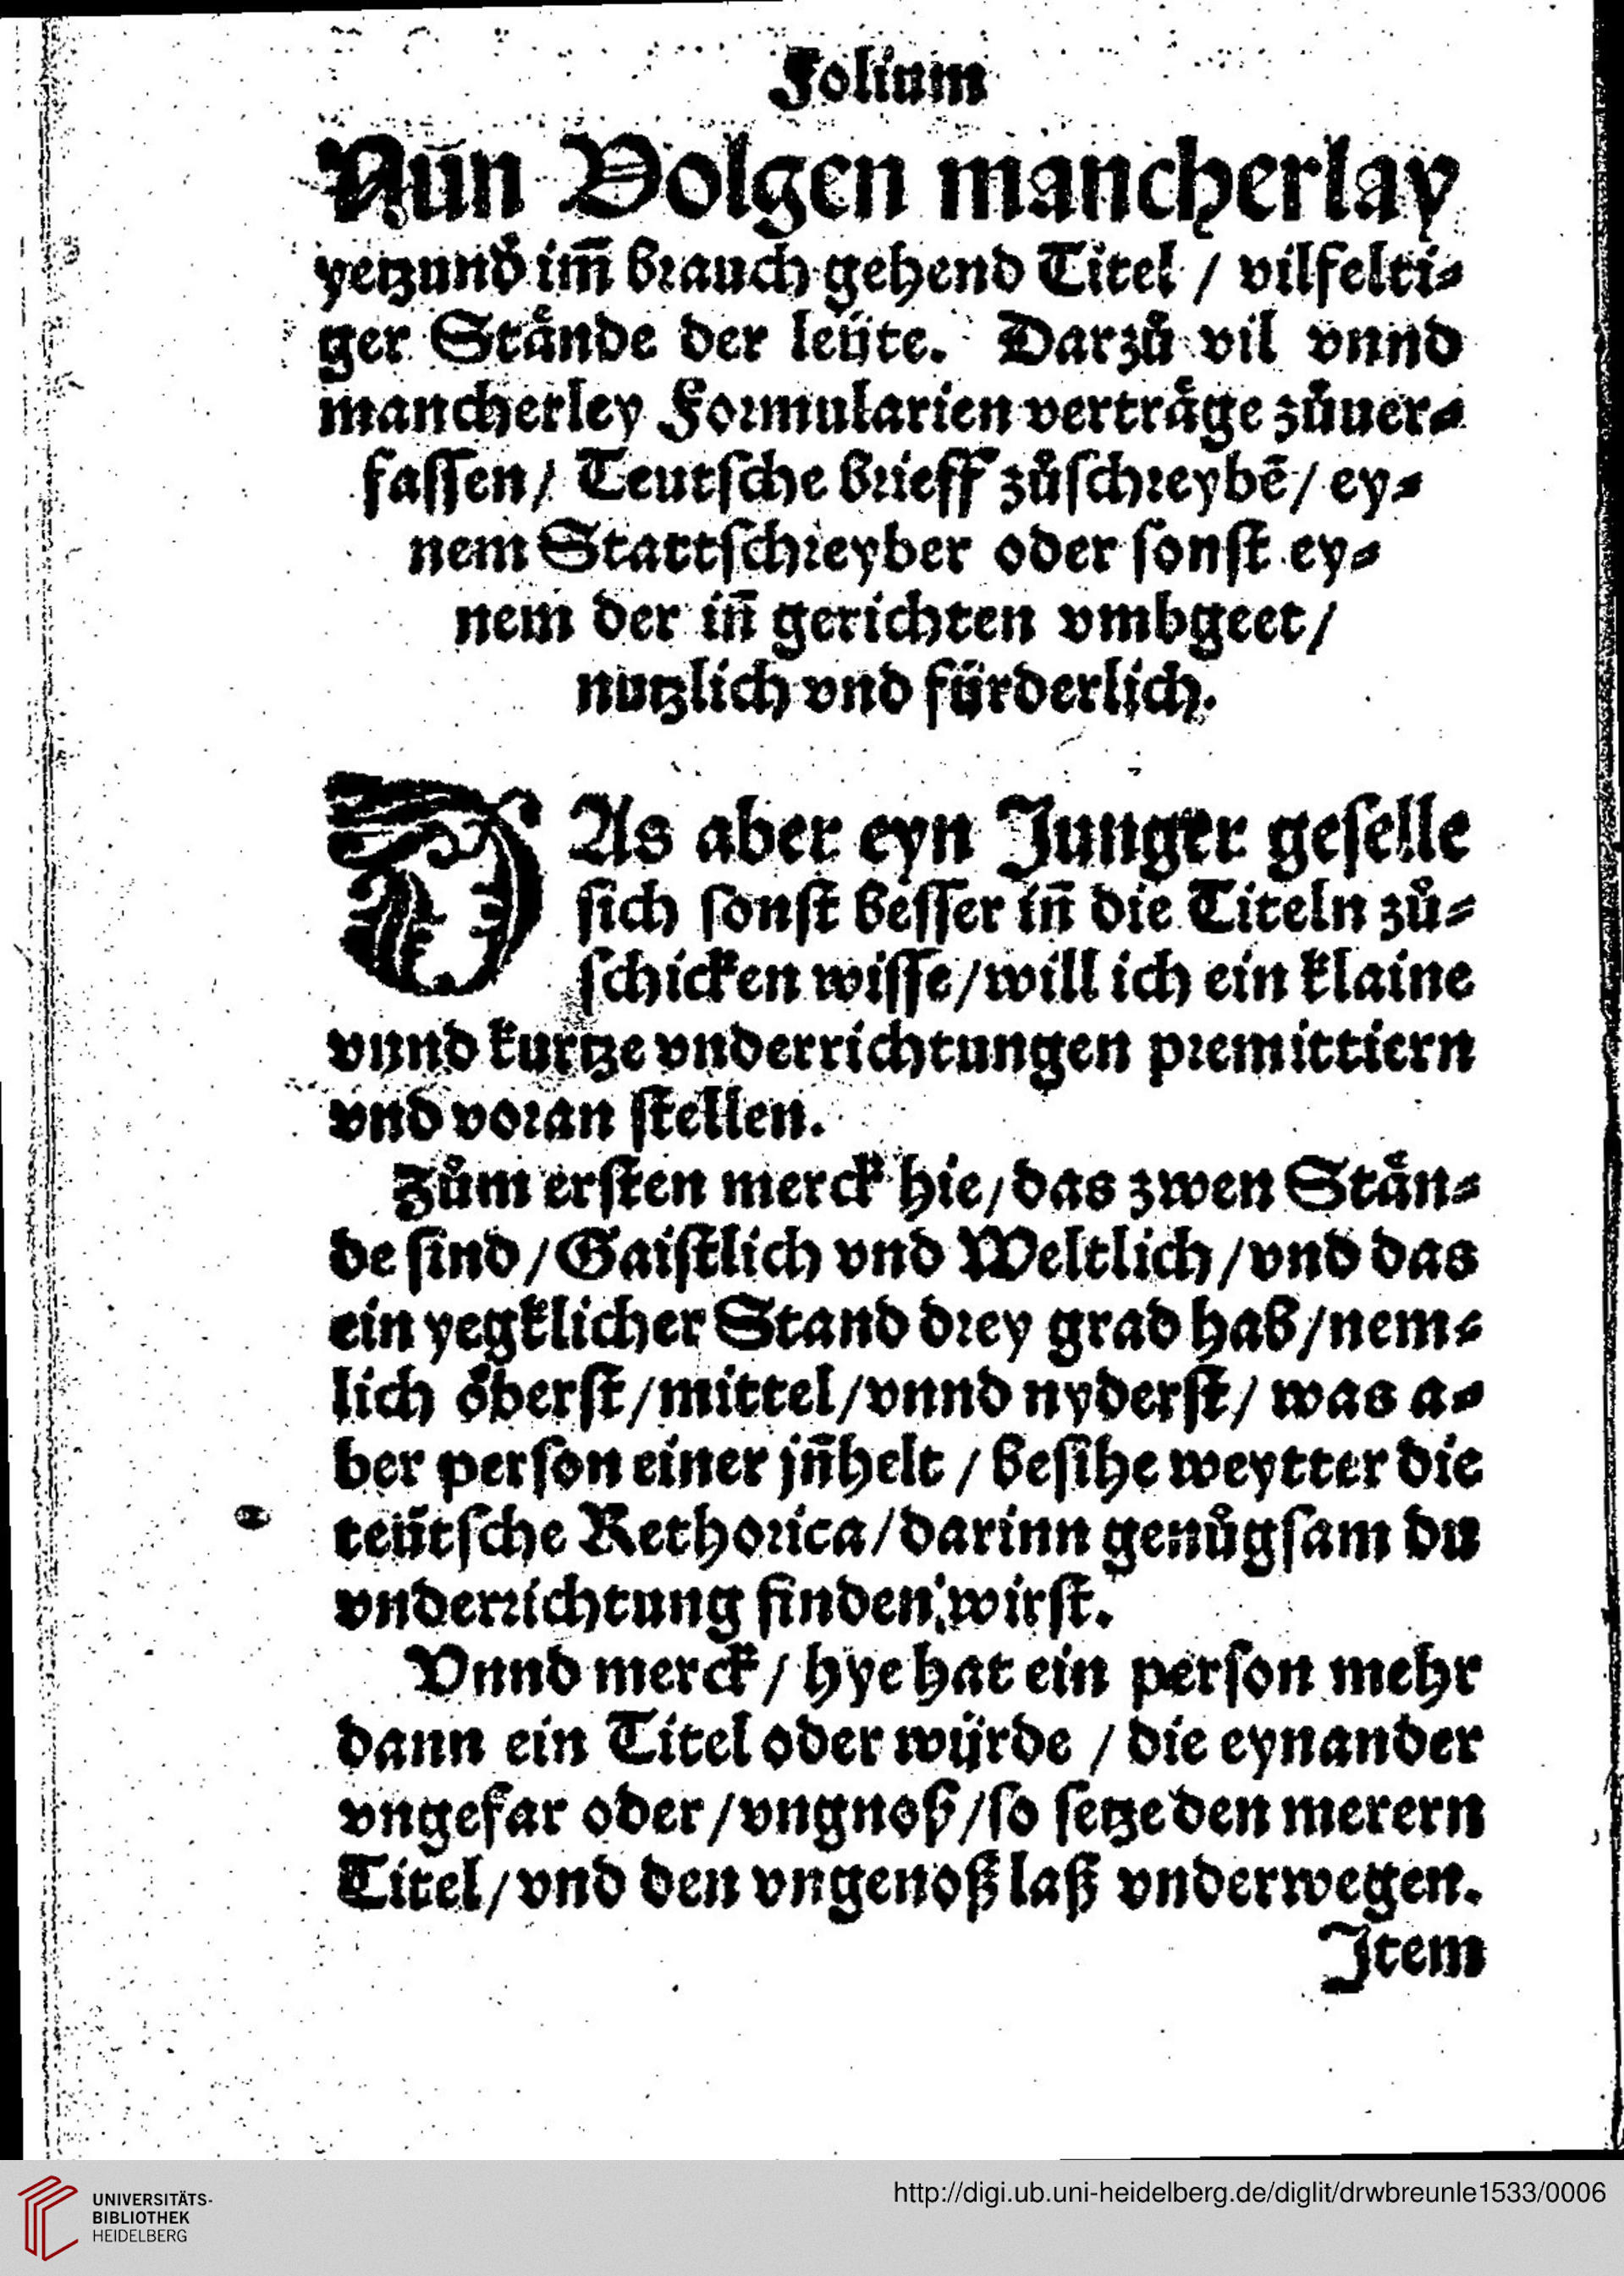 Folium
Nun Volgen mancherlay
yetzund im̄ brauch gehend Titel / vilfelti⸗
ger Stånde der leüte. Darzů vil vnnd
mancherley Formularien vertråge zůuer⸗
fassen / Teutsche brieff zůschreybē / ey⸗
nem Stattschreyber oder sonst ey⸗
nem der in̄ gerichten vmbgeet /
nutzlich vnd fürderlich.
DAs aber eyn Junger geselle
sich sonst besser in̄ die Titeln zů⸗
schicken wisse / will ich ein klaine
vnnd kurtze vnderrichtungen premittiern
vnd voran stellen.
Zům ersten merck hie / das zwen Stån⸗
de sind / Gaistlich vnd Weltlich / vnd das
ein yegklicher Stand drey grad hab / nem⸗
lich öberst / mittel / vnnd nyderst / was a⸗
ber person einer jn̄helt / besihe weytter die
teütsche Rethorica / darinn genůgsam du
vnderrichtung finden wirst.
Vnnd merck / hye hat ein person mehr
dann ein Titel oder würde / die eynander
vngefar oder / vngnoß / so setze den merern
Titel / vnd den vngenoß laß vnderwegen.
Item
UNIVERSITÄTS-
BIBLIOTHEK
HEIDELBERG
http://digi.ub.uni-heidelberg.de/diglit/drwbreunle1533/0006